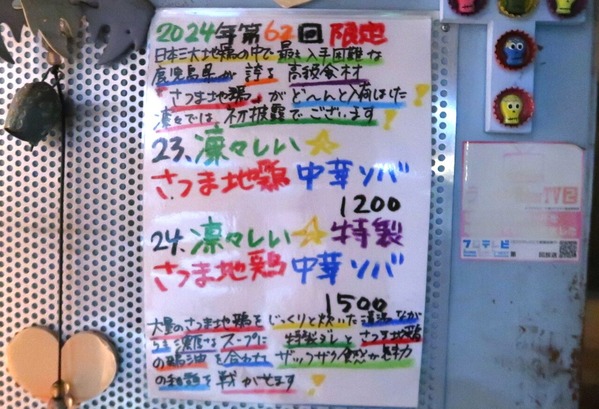 2024年第62回 限定
日本三大地鶏の中で最も入手困難な
鹿児島県が誇る高級食材
「さつま地鶏」がど〜んと入荷しました!
凛々では初披露でございます!
23.凛々しい☆
さつま地鶏中華ソバ
1200
24.凛々しい☆特製
さつま地鶏中華ソバ
1500
大量のさつま地鶏をじっくりと炊いた清湯なが
らも濃厚なスープに特製ダレとさつま地鶏
の鶏油を合わせザックザク食感が魅力
の麺を戦がせます!
フジテレビ